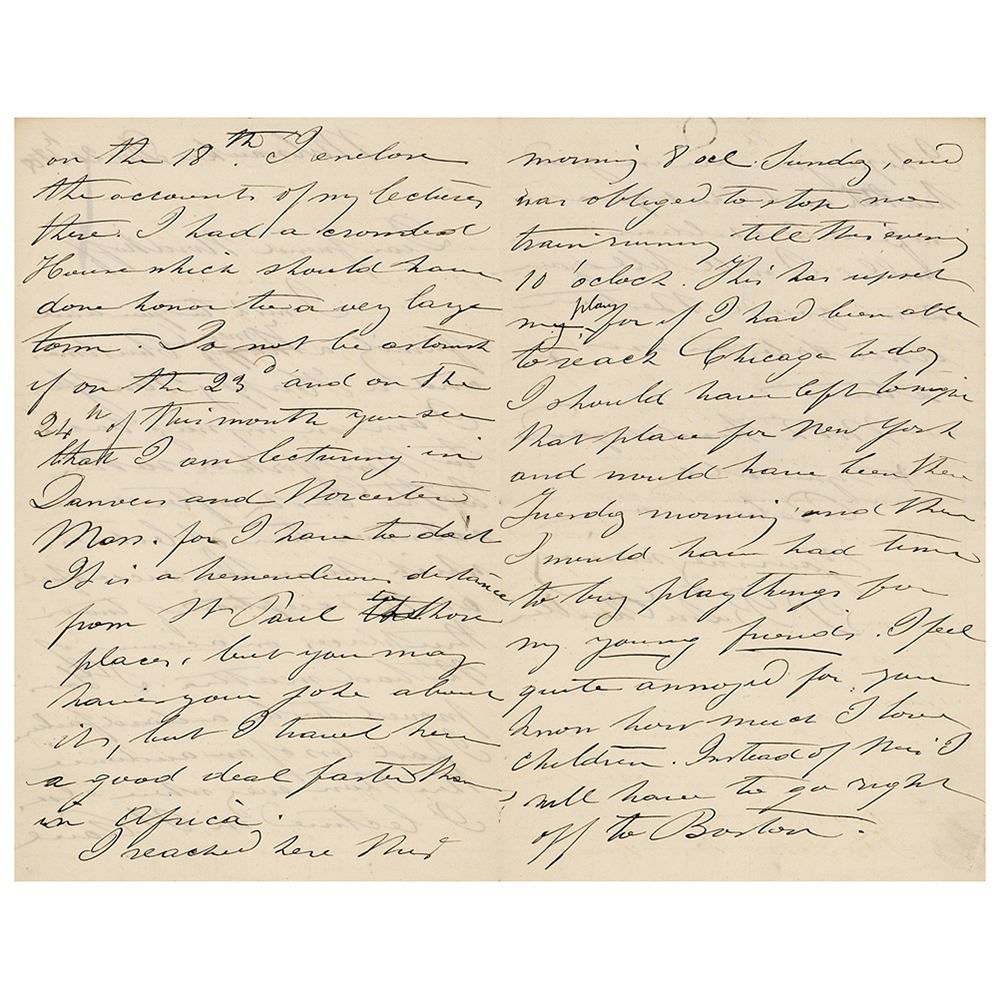 on the 18th. I enclose
the accounts of my lectures
there. I had a crowded
House which should have
done honor to a very large
town. Do not be astonish
if on the 23d and on the
24th of this month you see
that I am lecturing in
Danvers and Worcester
Mass. for I have to do it
It is a tremendous distance
from St Paul to those
places, but you may
have your joke about
it, but I travel here
a good deal faster than
in Africa.
I reached here this
morning 8 ocl. Sunday, and
was obliged to stop no
train running till this evening
10 o'clock. This has upset
my plans for if I had been able
to reach Chicago to day
I should have left to night
that place for New York
and would have been there
Tuesday morning and then
I would have had time
to buy playthings for
my young friends. I feel
quite annoyed for you
know how much I love
children. Instead of this I
will have to go right
off to Boston.